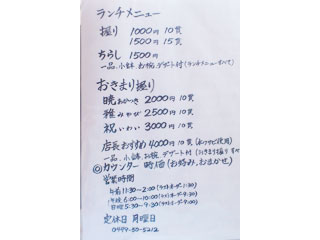 ランチメニュー
握り 1000円 10貫
1500円 15貫
ちらし 1500円
一品、小鉢、お椀、デザート付(ランチメニューすべて)
おきまり握り
暁 あかつき 2000円 10貫
雅 みやび 2500円 10貫
祝 いわい 3000円 10貫
店長おすすめ 4000円 10貫
一品、小鉢、お椀、デザート付(おきまり握り すべて)
◎カウンター 時価(お好み、おまかせ)
営業時間
午前11:30-2:00(ラストオーダー1:30)
午後 6:00-10:00(ラストオーダー9:30)
日曜 5:30-9:30(ラストオーダー9:00)
定休日 月曜日
0499-50-5212